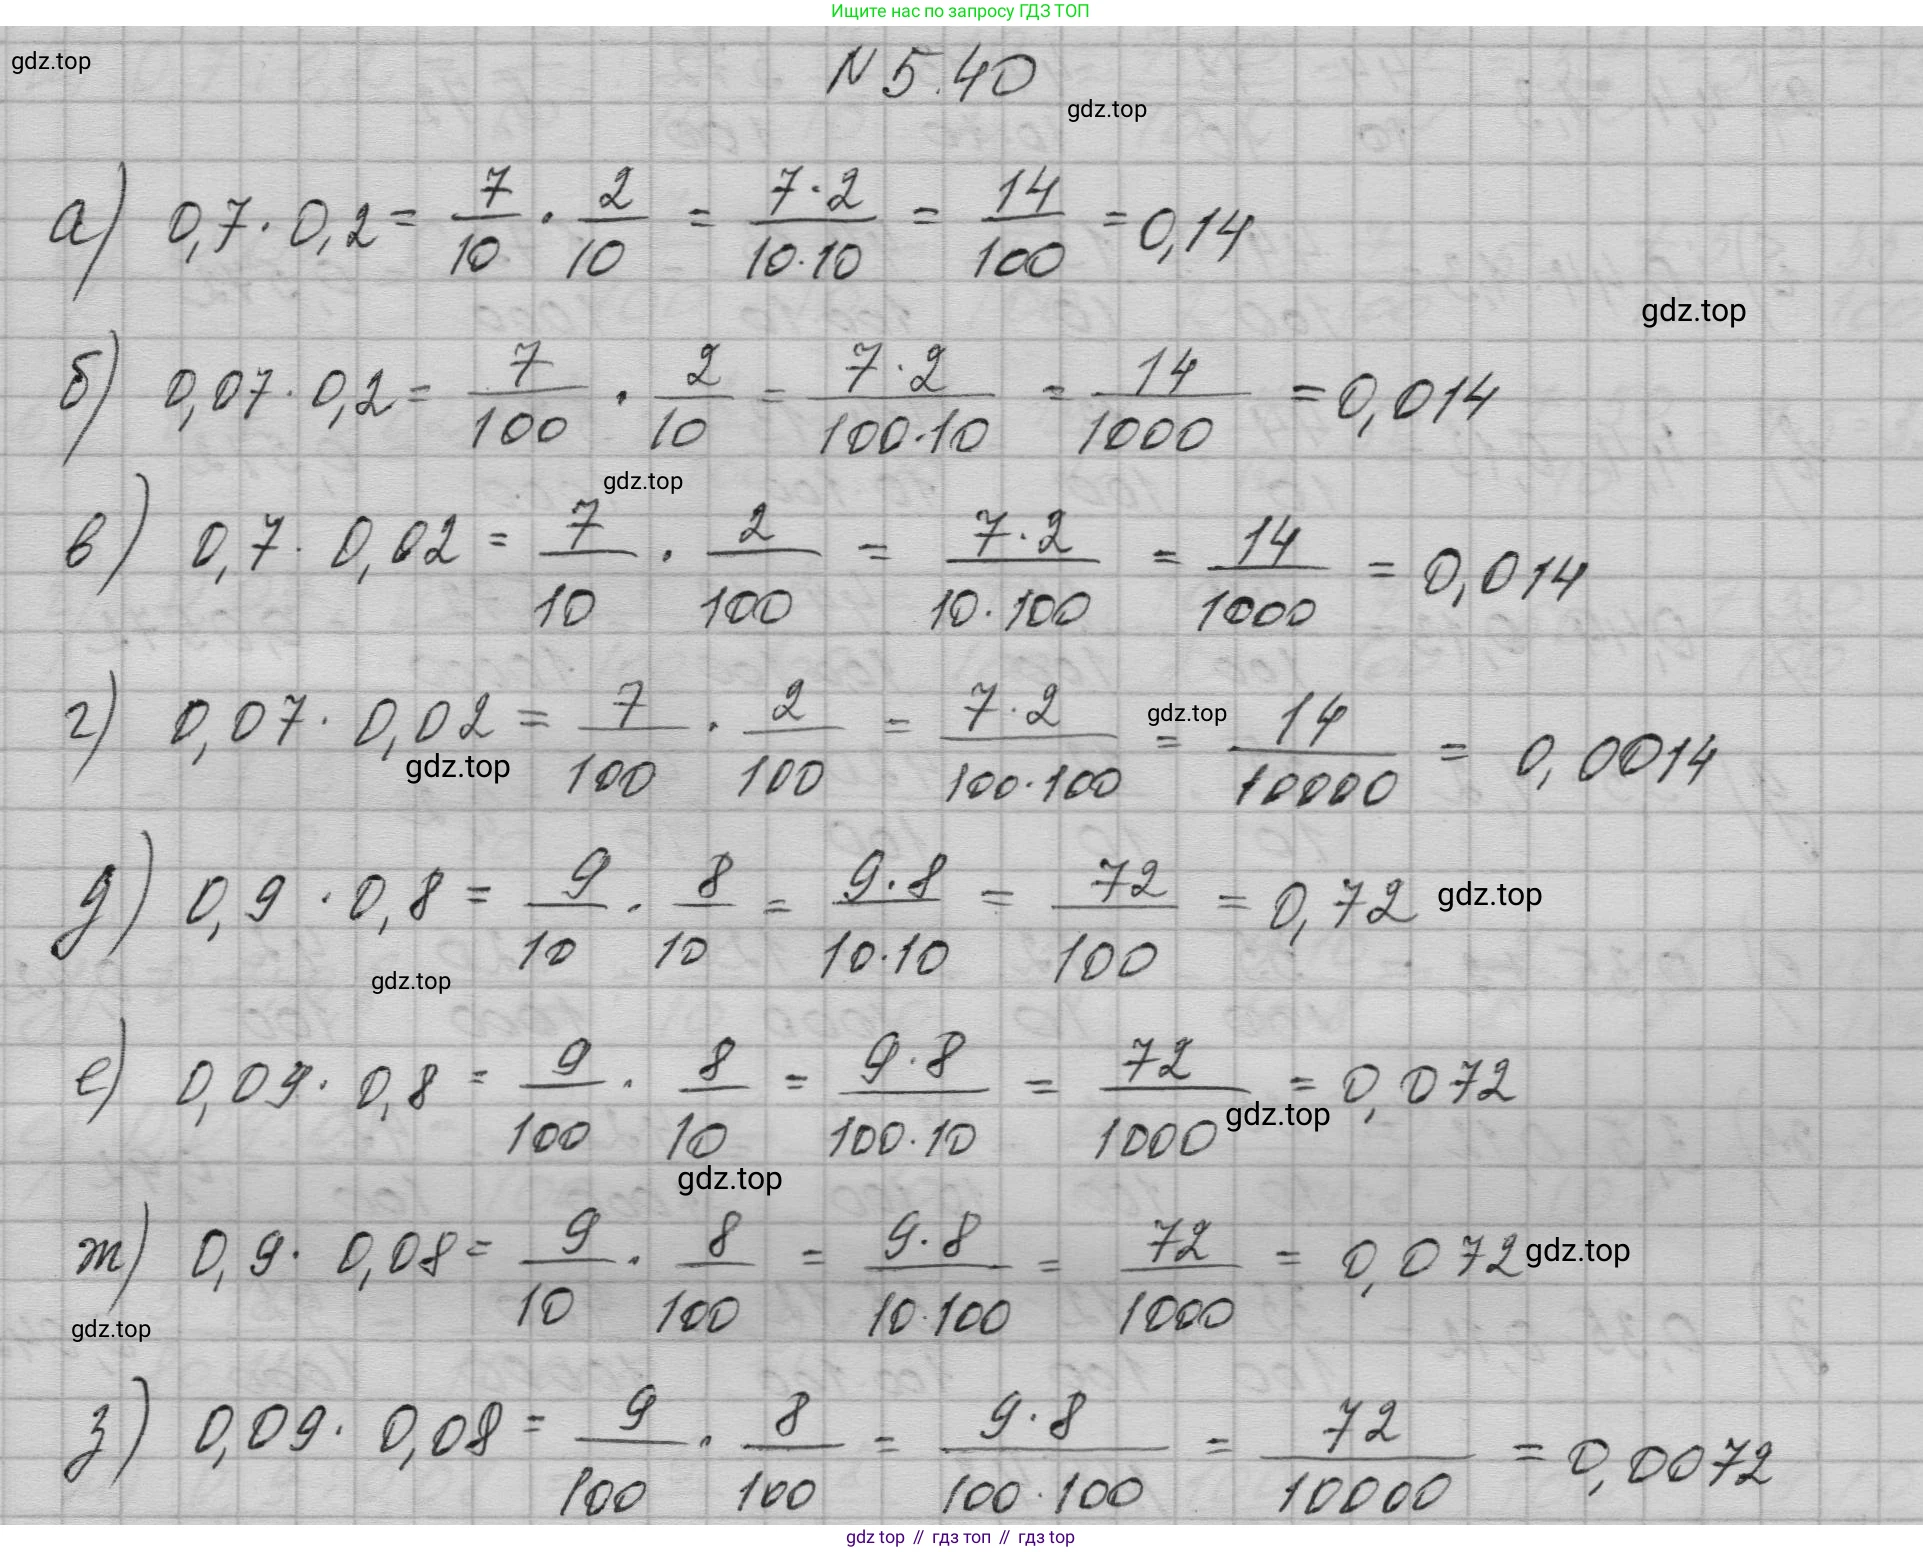 Ищите нас по запросу ГДЗ ТОП
gdz.top
N 5.40
gdz.top
а) 0,7 · 0,2 = 7/10 · 2/10 = 7·2/10·10 = 14/100 = 0,14
gdz.top
б) 0,07 · 0,2 = 7/100 · 2/10 = 7·2/100·10 = 14/1000 = 0,014
gdz.top
в) 0,7 · 0,02 = 7/10 · 2/100 = 7·2/10·100 = 14/1000 = 0,014
г) 0,07 · 0,02 = 7/100 · 2/100 = 7·2/100·100 = 14/10000 = 0,0014
gdz.top
gdz.top
д) 0,9 · 0,8 = 9/10 · 8/10 = 9·8/10·10 = 72/100 = 0,72
gdz.top
gdz.top
е) 0,09 · 0,8 = 9/100 · 8/10 = 9·8/100·10 = 72/1000 = 0,072
gdz.top
gdz.top
ж) 0,9 · 0,08 = 9/10 · 8/100 = 9·8/10·100 = 72/1000 = 0,072
gdz.top
gdz.top
з) 0,09 · 0,08 = 9/100 · 8/100 = 9·8/100·100 = 72/10000 = 0,0072
gdz top // гдз топ // гдз top